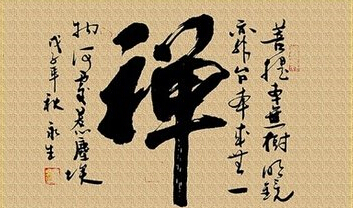 菩提本無樹明鏡
亦非台本來無一
禅
物何處惹塵埃
戊子年秋 永生